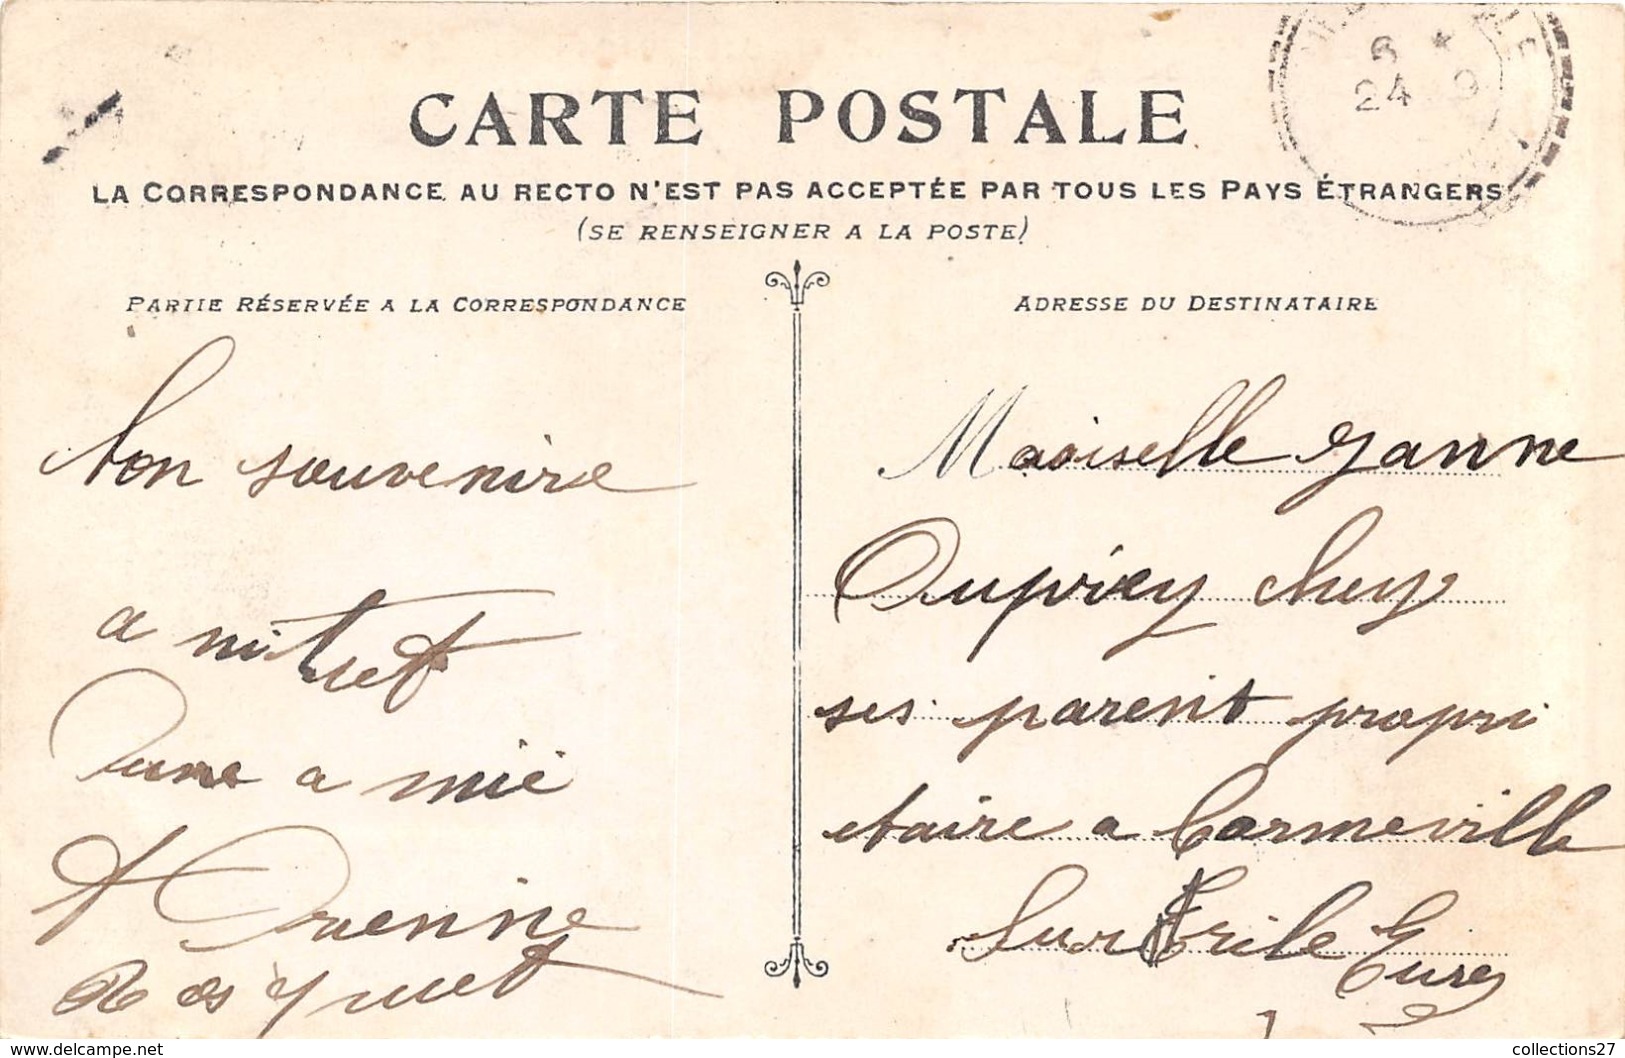 6 *
24 9
CARTE POSTALE
LA CORRESPONDANCE AU RECTO N'EST PAS ACCEPTÉE PAR TOUS LES PAYS ÉTRANGERS
(SE RENSEIGNER A LA POSTE)
PARTIE RÉSERVÉE A LA CORRESPONDANCE
bon souvenire
a
Dune a mié
Rosquet
ADRESSE DU DESTINATAIRE
Madoiselle Janne
Duprey chey
ses parent propri
etaire a Cormeville
Sur Rile Eure
www.delcampe.net
collections27